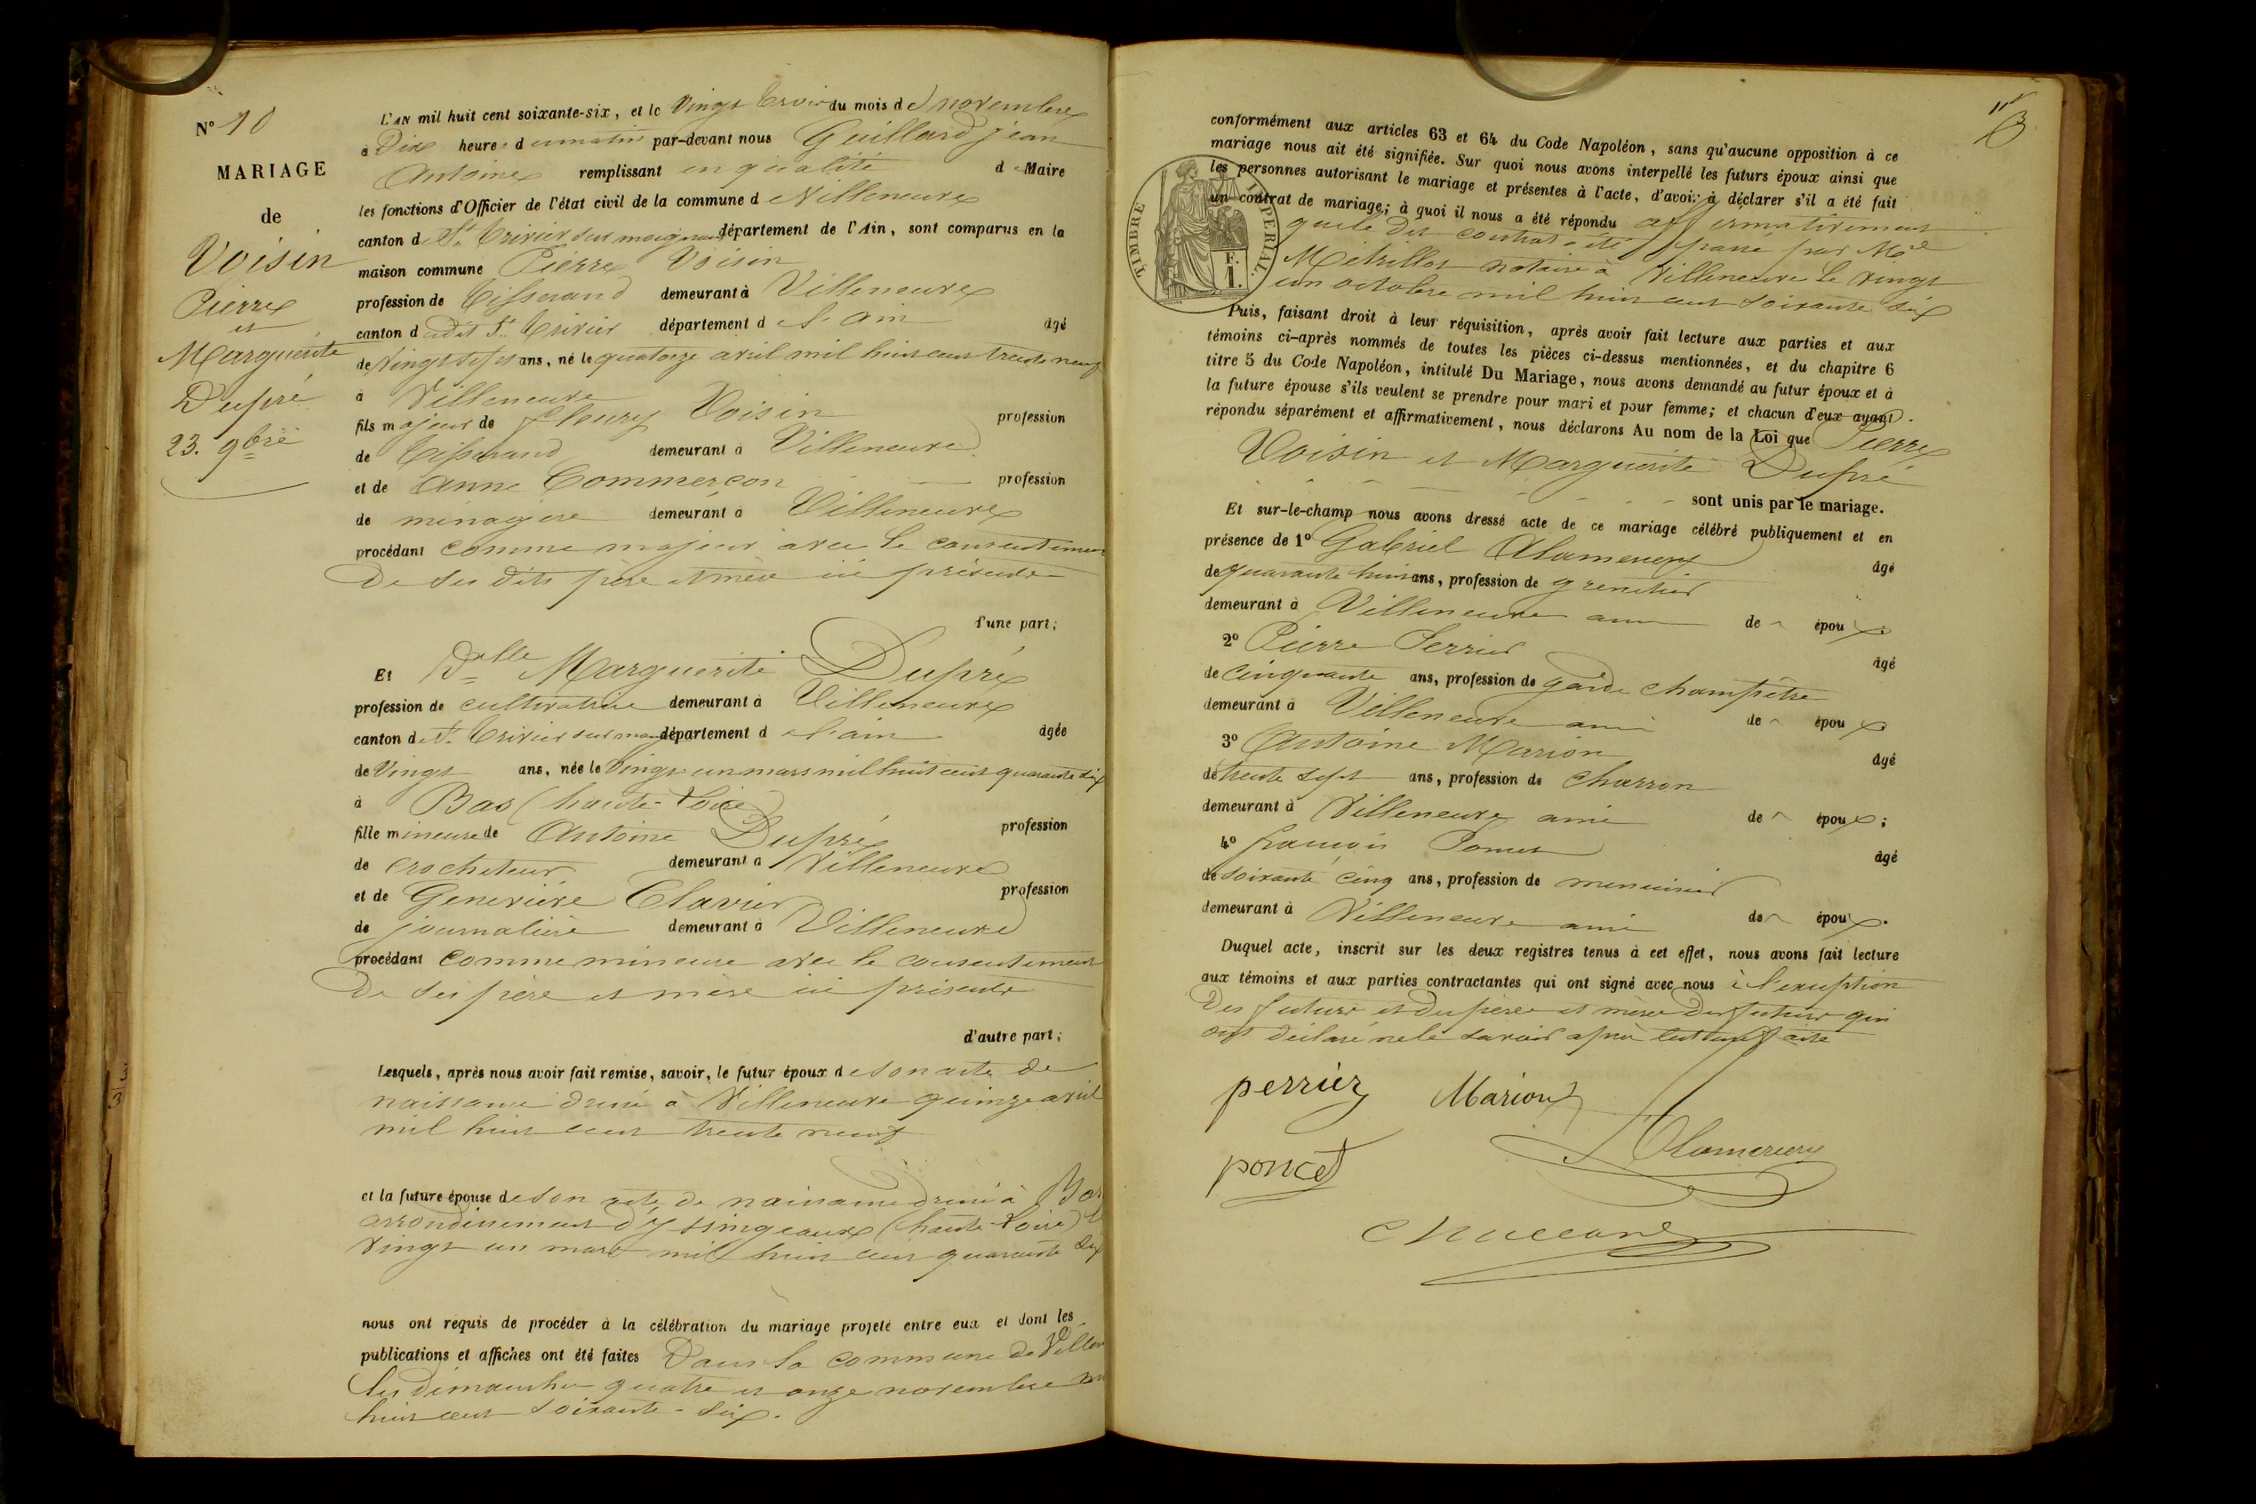 N° 10
MARIAGE
de
Voisin
Pierre
et
Marguerite
Dupré
23. 9bre
L'AN mil huit cent soixante-six, et le vingt trois du mois de novembre
à Dix heures du matin par-devant nous Guillard jean
Antoine remplissant en qualité de Maire
les fonctions d'Officier de l'état civil de la commune de Villeneuve
canton de St. Trivier sur moignans département de l'Ain, sont comparus en la
maison commune Pierre Voisin
profession de Tisserand demeurant à Villeneuve
canton dudit St. Trivier département de l'ain âgé
de vingt sept ans, né le quatorze avril mil huit cent trente neuf
à Villeneuve
fils majeur de fleury Voisin profession
de Tisserand demeurant à Villeneuve
et de Anne Commerçon profession
de ménagère demeurant à Villeneuve
procédant comme majeur avec le consentement
De ses dits père et mère ici présents
d'une part;
Et Dlle Marguerite Dupré
profession de cultivatrice demeurant à Villeneuve
canton de St. Trivier sur moig département de l'ain âgée
de vingt ans, née le vingt un mars mil huit cent quarante six
à Bas (haute-Loire)
fille mineure de Antoine Dupré profession
de crocheteur demeurant à Villeneuve
et de Geneviève Clavier profession
de journalière demeurant à Villeneuve
procédant comme mineure avec le consentement
De ses père et mère ici présents
d'autre part;
Lesquels, après nous avoir fait remise, savoir, le futur époux de son acte de
naissance dressé à Villeneuve quinze avril
mil huit cent trente neuf
et la future épouse de son acte de naissance dressé à Bas
arrondissement d'yssingeaux (haute-Loire) le
vingt un mars mil huit cent quarante six
nous ont requis de procéder à la célébration du mariage projeté entre eux et dont les
publications et affiches ont été faites Dans la commune de Villen
les dimanches quatre et onze novembre mil
huit cent soixante-six.
conformément aux articles 63 et 64 du Code Napoléon, sans qu'aucune opposition à ce
mariage nous ait été signifiée. Sur quoi nous avons interpellé les futurs époux ainsi que
les personnes autorisant le mariage et présentes à l'acte, d'avoir à déclarer s'il a été fait
un contrat de mariage; à quoi il nous a été répondu affirmativement
que le dit contrat a été passé par Me
Métrillot notaire à Villeneuve le vingt
un octobre mil huit cent soixante six
TIMBRE IMPERIAL
F.
1.
Puis, faisant droit à leur réquisition, après avoir fait lecture aux parties et aux
témoins ci-après nommés de toutes les pièces ci-dessus mentionnées, et du chapitre 6
titre 5 du Code Napoléon, intitulé Du Mariage, nous avons demandé au futur époux et à
la future épouse s'ils veulent se prendre pour mari et pour femme; et chacun d'eux ayant
répondu séparément et affirmativement, nous déclarons Au nom de la Loi que Pierre
Voisin et Marguerite Dupré
sont unis par le mariage.
Et sur-le-champ nous avons dressé acte de ce mariage célébré publiquement et en
présence de 1° Gabriel Alamercery
âgé
de quarante huit ans, profession de grenetier
demeurant à Villeneuve ami des époux
2° Pierre Perrier
âgé
de cinquante ans, profession de garde champêtre
demeurant à Villeneuve ami des époux
3° Antoine Marion
âgé
de trente sept ans, profession de charron
demeurant à Villeneuve ami des époux;
4° françois Poncet
âgé
de soixante cinq ans, profession de menuisier
demeurant à Villeneuve ami des époux.
Duquel acte, inscrit sur les deux registres tenus à cet effet, nous avons fait lecture
aux témoins et aux parties contractantes qui ont signé avec nous à l'exception
Des futurs et des pères et mères des futurs qui
ont déclaré ne le savoir après lecture faite
perrier Marion
Alamercery
poncet